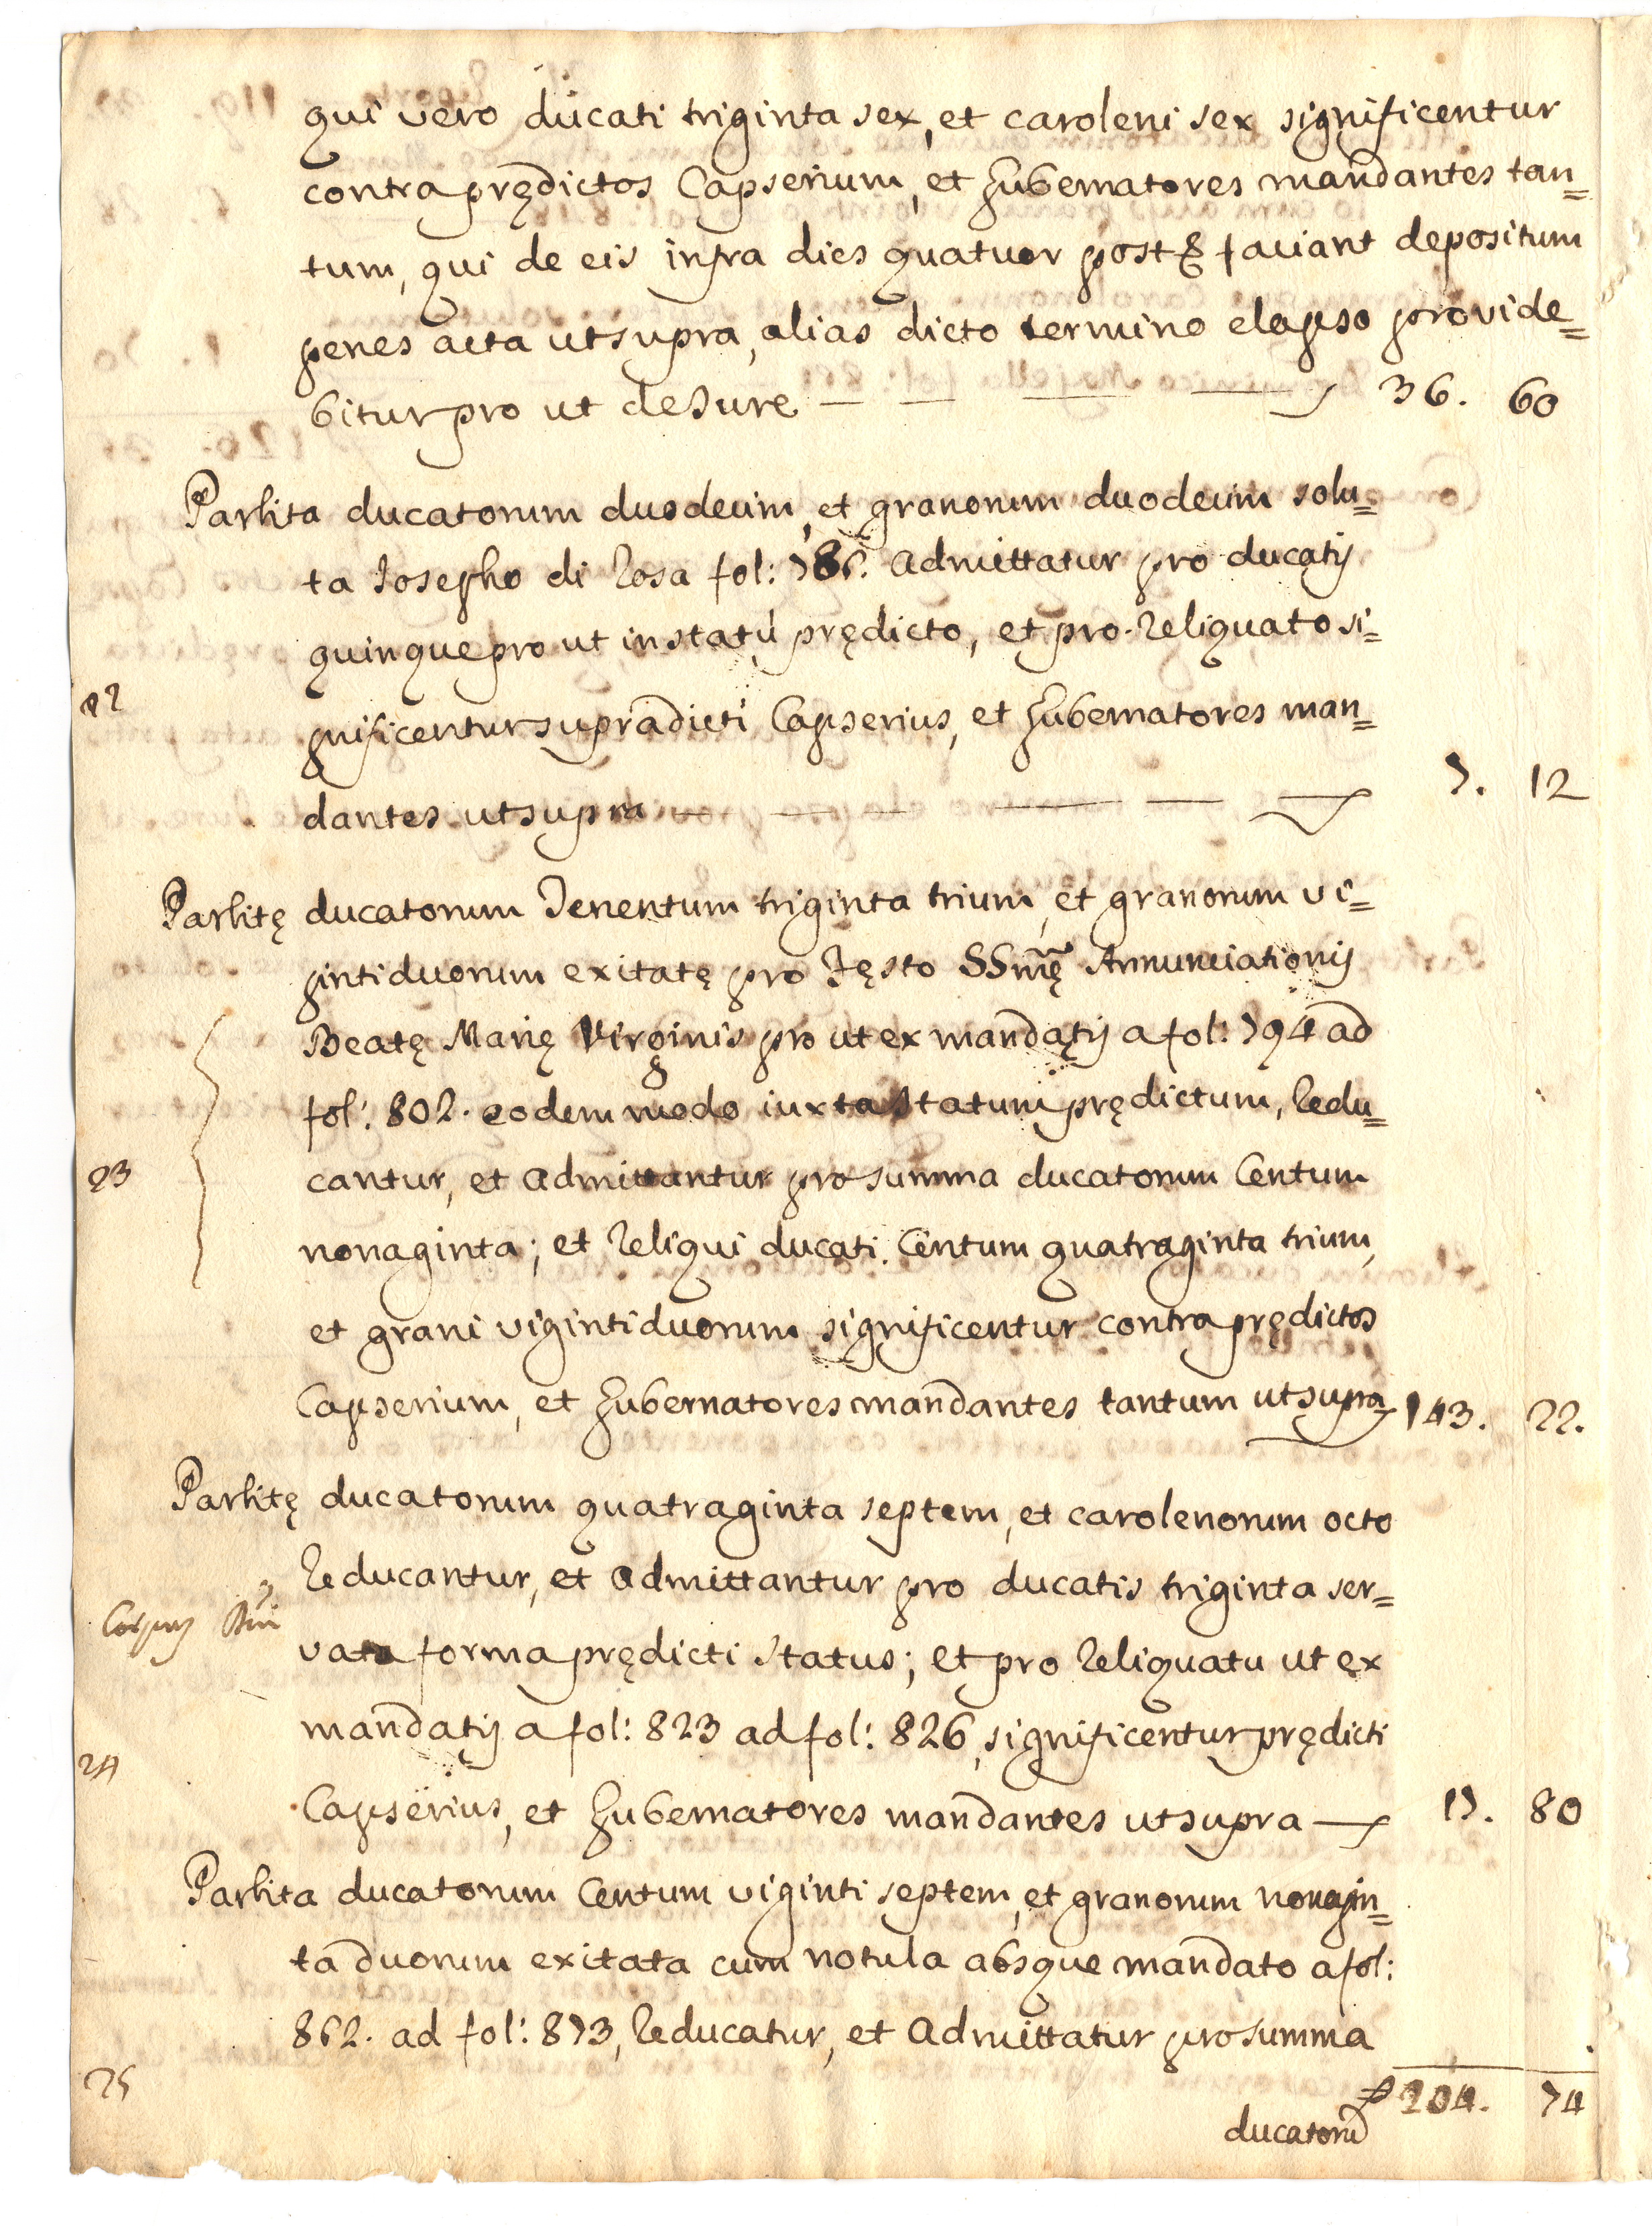 qui vero ducati triginta sex, et caroleni sex significentur
contra prędictos Capserium, et Gubernatores mandantes tan=
tum, qui de eis infra dies quatuor post faciant depositum
penes acta ut supra, alias dicto termino elapso provide=
bitur pro ut de Jure 36. 60
Partita ducatorum duodecim, et granorum duodecim solu=
ta Iosepho di Rosa fol: 786. admittatur pro ducatis
quinque pro ut in statu prędicto, et pro Reliquato si=
22
gnificentur supradicti Capserius, et Gubernatores man=
dantes ut supra 7. 12
Partitę ducatorum Tercentum triginta trium, et granorum vi=
gintiduorum exitatę pro Fęsto SSmę Annunciationis
Beatę Marię Virginis pro ut ex mandatis a fol: 794 ad
fol: 802. eodem modo iuxta statum prędictum, Redu=
23
cantur, et admittantur pro summa ducatorum Centum
nonaginta; et Reliqui ducati Centum quatraginta trium,
et grani vigintiduorum significentur contra prędictos
Capserium, et Gubernatores mandantes tantum ut supra 143. 22.
Partitę ducatorum quatraginta septem, et carolenorum octo
Reducantur, et admittantur pro ducatis triginta ser=
Corpus
vata forma prędicti status; et pro Reliquatu ut ex
mandatis a fol: 823 ad fol: 826, significentur prędicti
24
Capserius, et Gubernatores mandantes ut supra 17. 80
Partita ducatorum Centum viginti septem, et granorum nonagin=
ta duorum exitata cum notula absque mandato a fol:
862. ad fol: 873, Reducatur, et admittatur pro summa
25
204. 74
ducatorũ